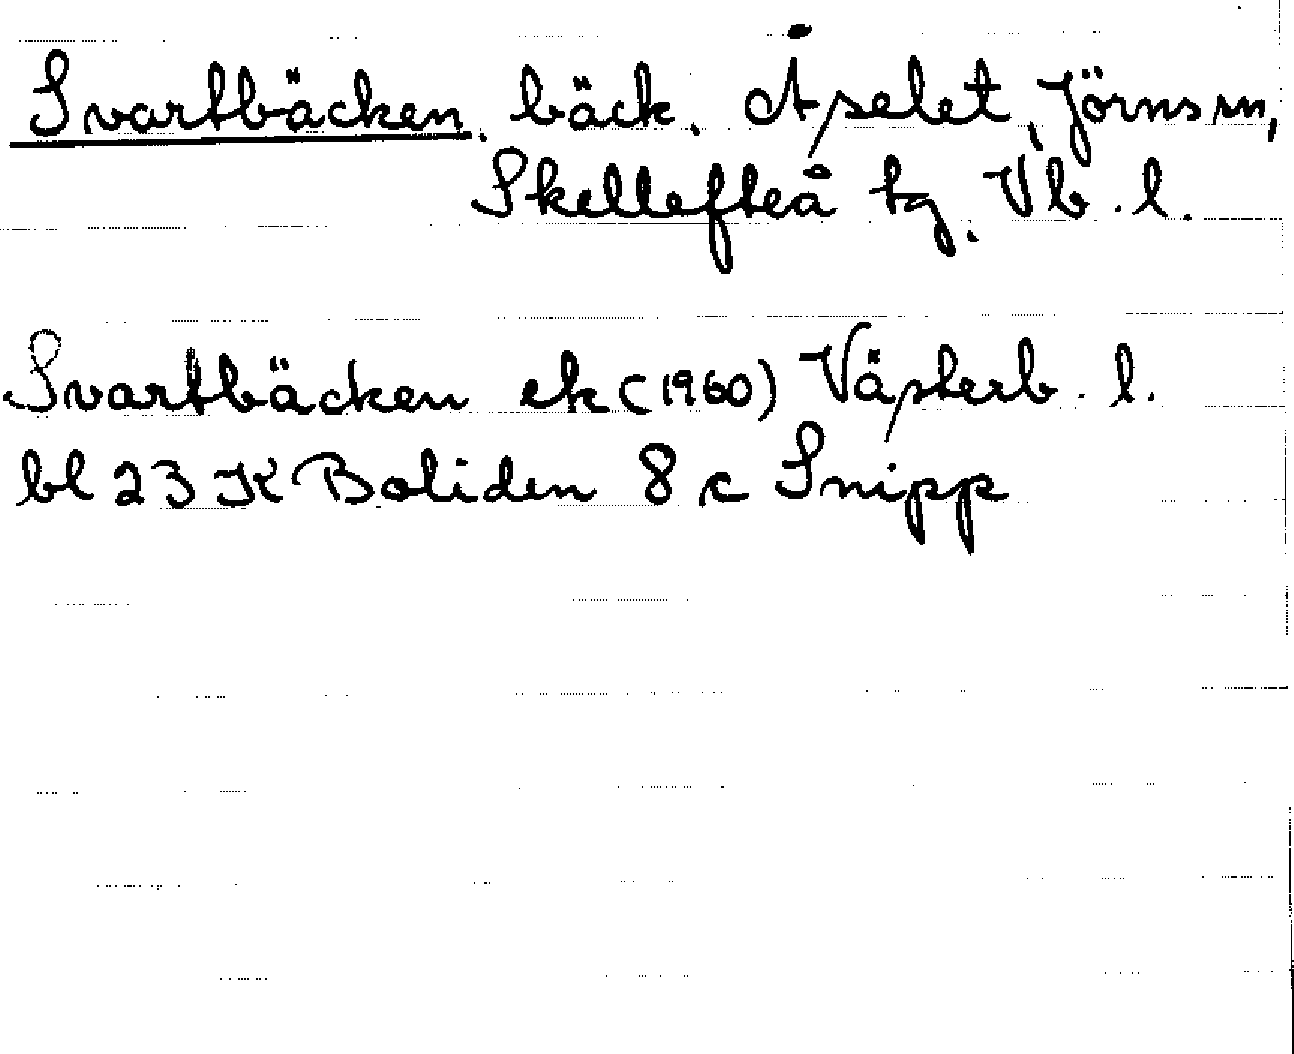 Svartbäcken, bäck. Åselet, Jörns sn,
Skellefteå tg. Vb. l.
Svartbäcken ek (1960) Västerb. l.
bl 23 K Boliden 8 c Snipp